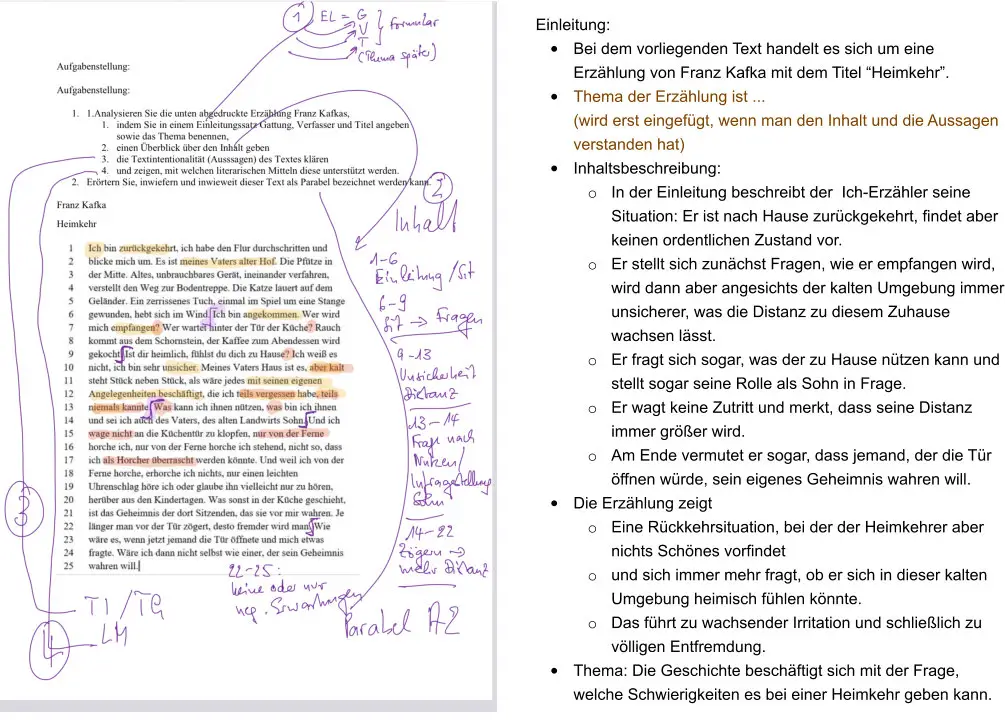 1 EL = G
V
T
Formular
(Thema später)
Aufgabenstellung:
Aufgabenstellung:
1. 1.Analysieren Sie die unten abgedruckte Erzählung Franz Kafkas,
1. indem Sie in einem Einleitungssatz Gattung, Verfasser und Titel angeben
sowie das Thema benennen,
2. einen Überblick über den Inhalt geben
3. die Textintentionalität (Ausssagen) des Textes klären
4. und zeigen, mit welchen literarischen Mitteln diese unterstützt werden.
2. Erörtern Sie, inwiefern und inwieweit dieser Text als Parabel bezeichnet werden kann.
Franz Kafka
Heimkehr
1 Ich bin zurückgekehrt, ich habe den Flur durchschritten und
2 blicke mich um. Es ist meines Vaters alter Hof. Die Pfütze in
3 der Mitte. Altes, unbrauchbares Gerät, ineinander verfahren,
4 verstellt den Weg zur Bodentreppe. Die Katze lauert auf dem
5 Geländer. Ein zerrissenes Tuch, einmal im Spiel um eine Stange
6 gewunden, hebt sich im Wind. Ich bin angekommen. Wer wird
7 mich empfangen? Wer wartet hinter der Tür der Küche? Rauch
8 kommt aus dem Schornstein, der Kaffee zum Abendessen wird
9 gekocht. Ist dir heimlich, fühlst du dich zu Hause? Ich weiß es
10 nicht, ich bin sehr unsicher. Meines Vaters Haus ist es, aber kalt
11 steht Stück neben Stück, als wäre jedes mit seinen eigenen
12 Angelegenheiten beschäftigt, die ich teils vergessen habe, teils
13 niemals kannte. Was kann ich ihnen nützen, was bin ich ihnen
14 und sei ich auch des Vaters, des alten Landwirts Sohn. Und ich
15 wage nicht an die Küchentür zu klopfen, nur von der Ferne
16 horche ich, nur von der Ferne horche ich stehend, nicht so, dass
17 ich als Horcher überrascht werden könnte. Und weil ich von der
18 Ferne horche, erhorche ich nichts, nur einen leichten
19 Uhrenschlag höre ich oder glaube ihn vielleicht nur zu hören,
20 herüber aus den Kindertagen. Was sonst in der Küche geschieht,
21 ist das Geheimnis der dort Sitzenden, das sie vor mir wahren. Je
22 länger man vor der Tür zögert, desto fremder wird man. Wie
23 wäre es, wenn jetzt jemand die Tür öffnete und mich etwas
24 fragte. Wäre ich dann nicht selbst wie einer, der sein Geheimnis
25 wahren will.
2
Inhalt
1-6
Einleitung / Sit
6-9
Sit → Fragen
9-13
Unsicherheit
Distanz
13-14
Frage nach
Nutzen/
Infragestellung
Sohn
14-22
Zögern →
mehr Distanz
22-25:
keine oder nur
neg. Erwartungen
3
TI / TG
4
LM
Parabel A2
Einleitung:
• Bei dem vorliegenden Text handelt es sich um eine
Erzählung von Franz Kafka mit dem Titel “Heimkehr”.
• Thema der Erzählung ist ...
(wird erst eingefügt, wenn man den Inhalt und die Aussagen
verstanden hat)
• Inhaltsbeschreibung:
o In der Einleitung beschreibt der Ich-Erzähler seine
Situation: Er ist nach Hause zurückgekehrt, findet aber
keinen ordentlichen Zustand vor.
o Er stellt sich zunächst Fragen, wie er empfangen wird,
wird dann aber angesichts der kalten Umgebung immer
unsicherer, was die Distanz zu diesem Zuhause
wachsen lässt.
o Er fragt sich sogar, was der zu Hause nützen kann und
stellt sogar seine Rolle als Sohn in Frage.
o Er wagt keine Zutritt und merkt, dass seine Distanz
immer größer wird.
o Am Ende vermutet er sogar, dass jemand, der die Tür
öffnen würde, sein eigenes Geheimnis wahren will.
• Die Erzählung zeigt
o Eine Rückkehrsituation, bei der der Heimkehrer aber
nichts Schönes vorfindet
o und sich immer mehr fragt, ob er sich in dieser kalten
Umgebung heimisch fühlen könnte.
o Das führt zu wachsender Irritation und schließlich zu
völligen Entfremdung.
• Thema: Die Geschichte beschäftigt sich mit der Frage,
welche Schwierigkeiten es bei einer Heimkehr geben kann.